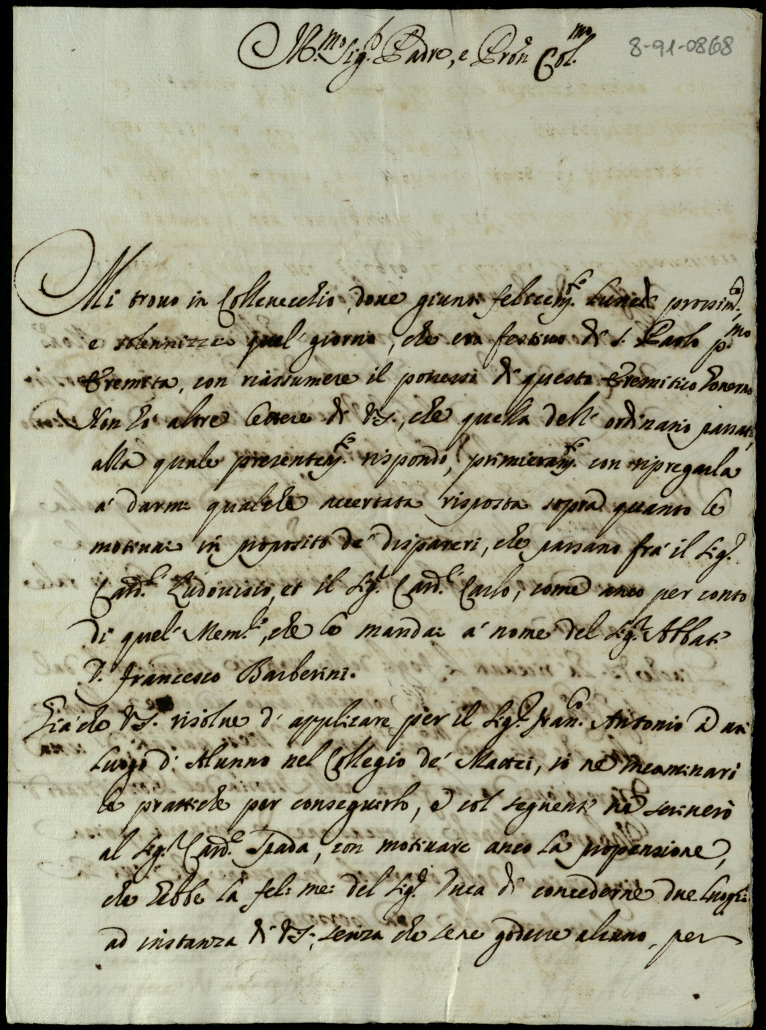 Ill.mo Sig.r Padre, e Pron Col.mo
8-91-0868
Mi trovo in Collevecchio, dove giunsi felicem.te Lunedì prossim.
e solennizzai quel giorno, che era festivo di S. Paolo p.mo
Eremita, con riassumere il possesso di questo Eremitico Governo
Non hò altre lettere di VS., che quella dell' ordinario passato,
alla quale presentem.te rispondo, primieram.te con ripregarla
à darmi qualche accertata risposta sopra quanto le
motivai in proposito de' dispareri, che passano frà il Sig.r
Card.l Ludovisio, et il Sig.r Card.l Carlo, come anco per conto
di quel Mem.le, che le mandai à nome del Sig.r Abbate
D. Francesco Barberini.
Già che VS. risolve d' applicare per il Sig.r Fran.co Antonio ad un
Luogo d' Alunno nel Collegio de' Mattei, io ne incaminarò
le prattiche per conseguirlo, e col seguente ne scriverò
al Sig.r Card.l Spada, con motivare anco la propensione,
che hebbe la fel: me: del Sig.r Duca di concederne due luoghi
ad instanza di VS., senza che se ne godesse alcuno, per